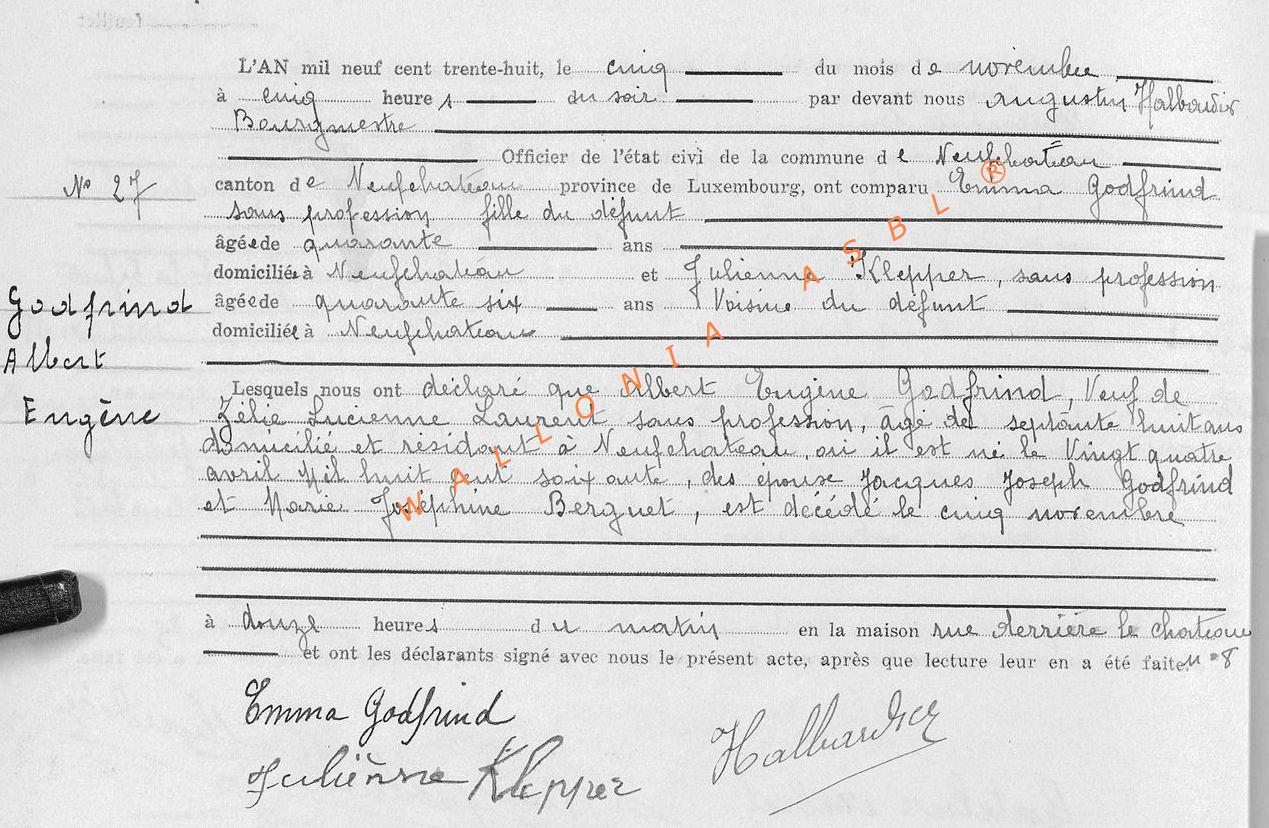 L'AN mil neuf cent trente-huit, le cinq du mois de novembre
à cinq heures du soir par devant nous Augustin Halbardier
Bourgmestre
Officier de l'état civi de la commune de Neufchateau
N° 27
canton de Neufchateau province de Luxembourg, ont comparu Emma Godfrind
sans profession fille du défunt
âgée de quarante ans
domiciliée à Neufchateau et Julienne Klepper, sans profession
Godfrind
Albert
Eugène
âgée de quarante six ans Voisine du défunt
domiciliée à Neufchateau
Lesquels nous ont déclaré que Albert Eugène Godfrind, Veuf de
Zélie Lucienne Laurent sans profession, âgé de septante huit ans
domicilié et résidant à Neufchateau, où il est né le Vingt quatre
avril Mil huit cent soixante, des épouse Jacques Joseph Godfrind
et Marie Joséphine Berguet, est décédé le cinq novembre
à douze heures du matin en la maison rue derrière le chateau
et ont les déclarants signé avec nous le présent acte, après que lecture leur en a été faite. n° 8
Emma Godfrind
Julienne Klepper
Halbardier
WALLONIA ASBL ®